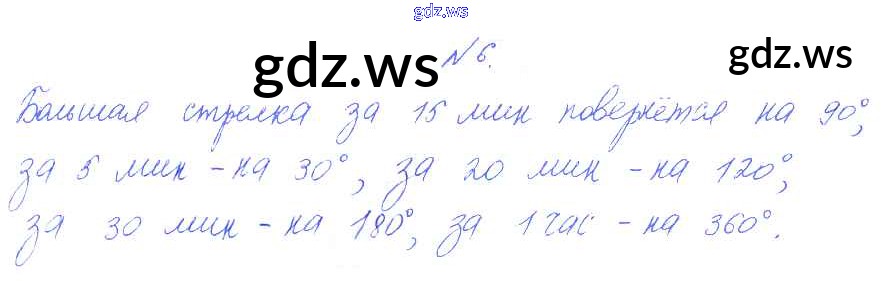 gdz.ws
gdz.ws
gdz.ws
№ 6.
Большая стрелка за 15 мин повернётся на 90°,
за 5 мин - на 30°, за 20 мин - на 120°,
за 30 мин - на 180°, за 1 час - на 360°.